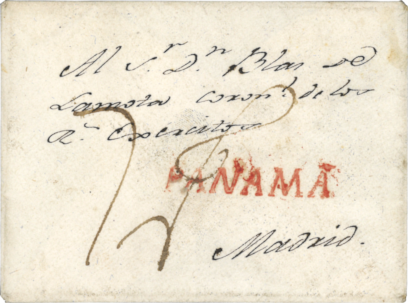 Al S.r D.n Blas de
Lamota coron.l de los
R.s Exercitos
PANAMA
Madrid.